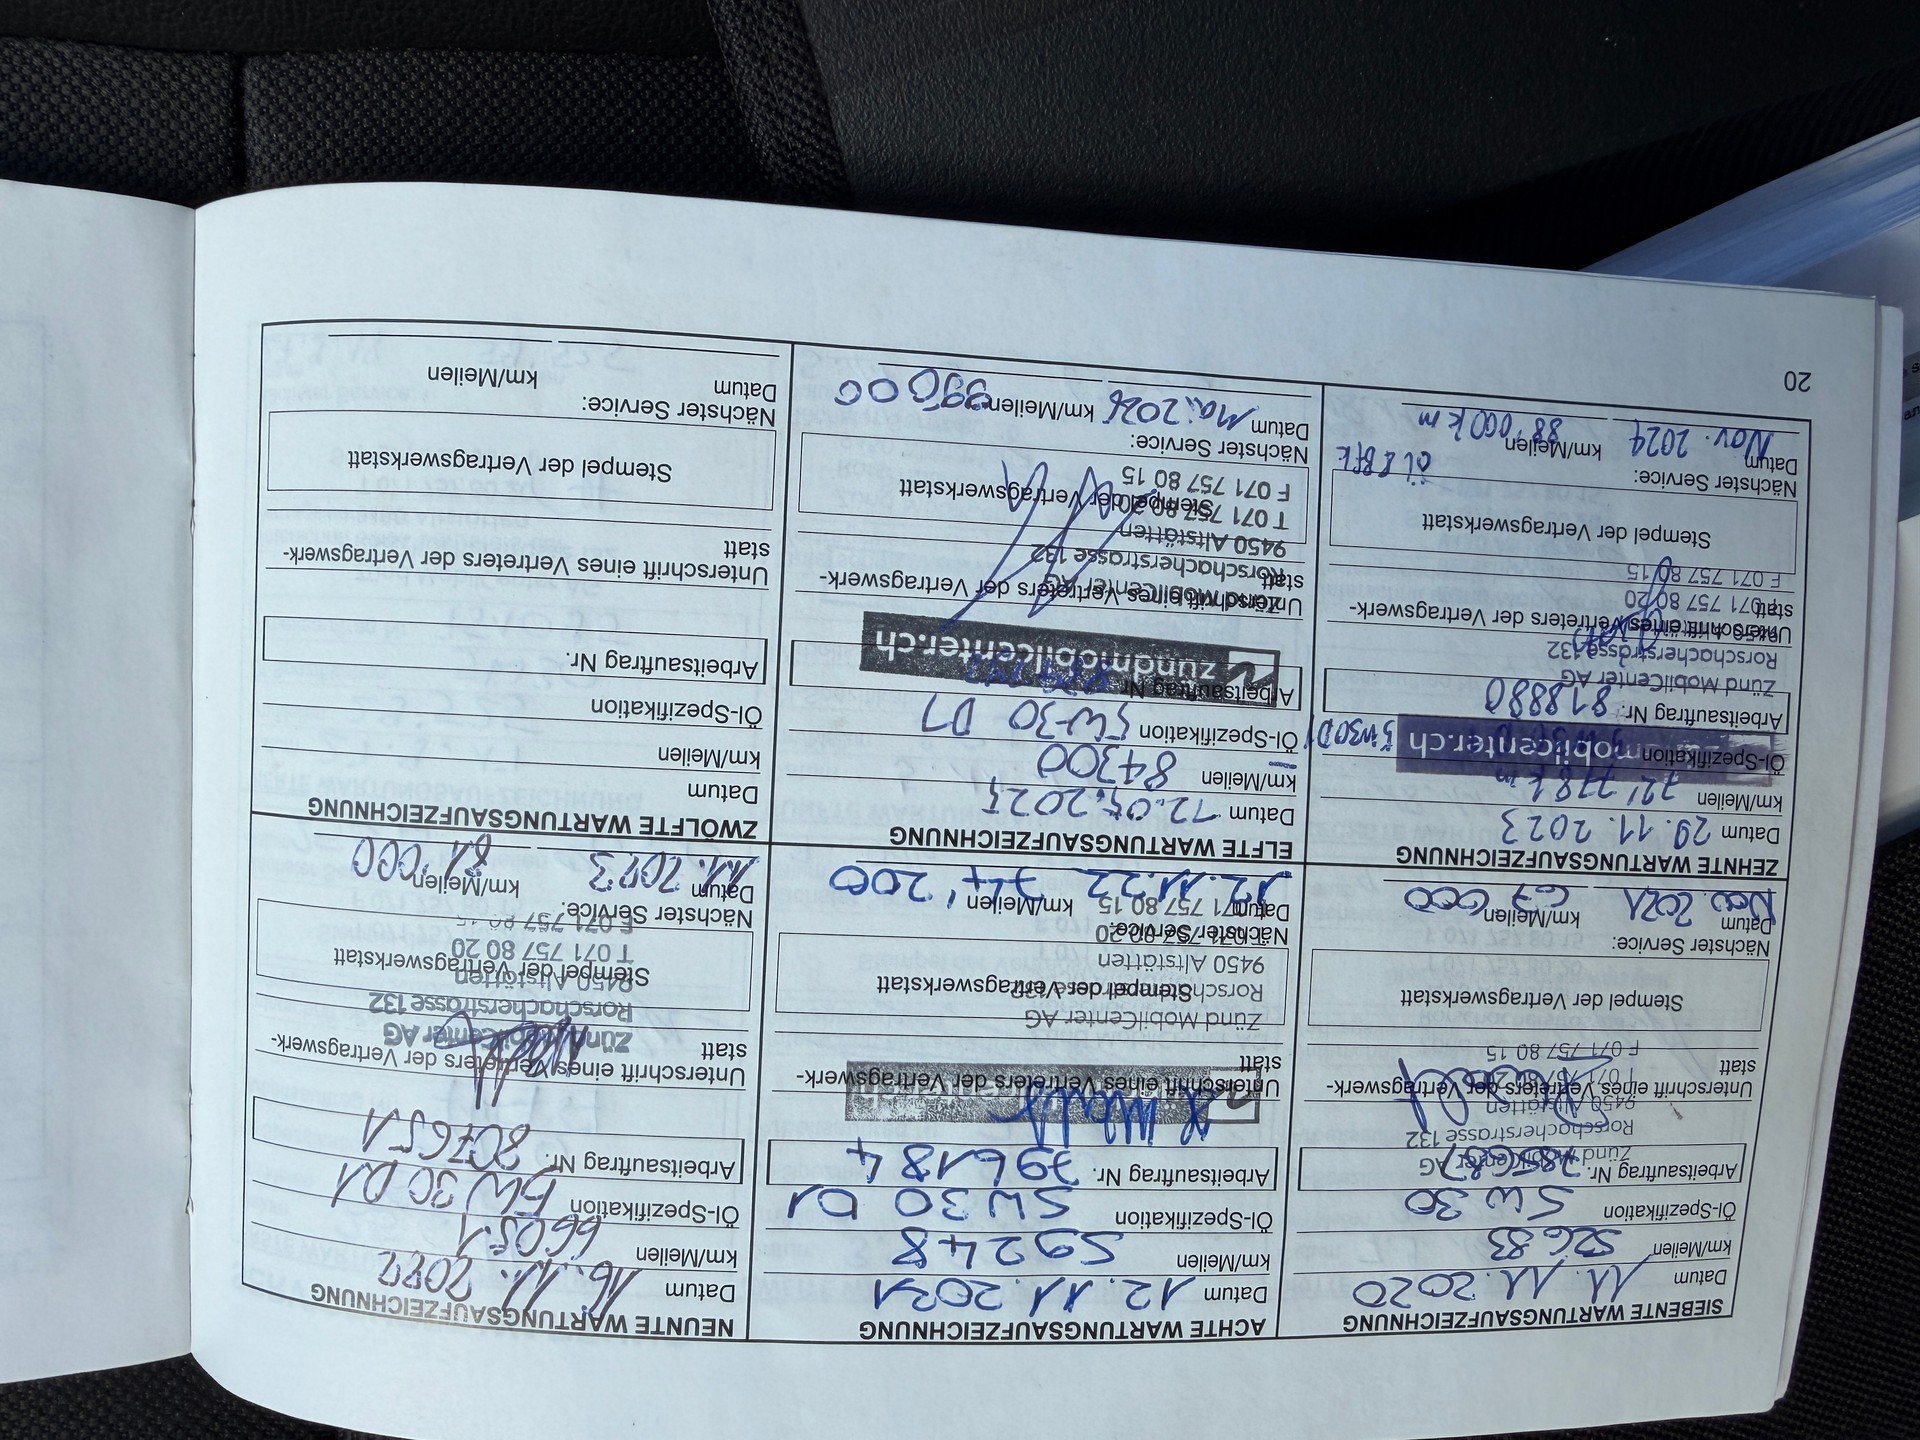 SIEBENTE WARTUNGSAUFZEICHNUNG
Datum 11.11.2020
km/Meilen 52683
Öl-Spezifikation 5W30
Arbeitsauftrag Nr. 785687
Zünd MobilCenter AG
Rorschacherstrasse 132
9450 Altstätten
Unterschrift eines Vertreters der Vertragswerk-
statt
F 071 757 80 15
Stempel der Vertragswerkstatt
Nächster Service:
Datum Nov. 2021 km/Meilen 67000
ACHTE WARTUNGSAUFZEICHNUNG
Datum 12.11.2021
km/Meilen 59248
Öl-Spezifikation 5W30 D1
Arbeitsauftrag Nr. 796184
Unterschrift eines Vertreters der Vertragswerk-
statt
Zünd MobilCenter AG
Rorschacherstrasse 132
Stempel der Vertragswerkstatt
9450 Altstätten
T 071 757 80 20
Nächster Service:
F 071 757 80 15
Datum 12.11.22 km/Meilen 74'200
NEUNTE WARTUNGSAUFZEICHNUNG
Datum 16.11.2022
km/Meilen 66051
Öl-Spezifikation 5W30 D1
Arbeitsauftrag Nr. 807651
Unterschrift eines Vertreters der Vertragswerk-
statt
Zünd MobilCenter AG
Rorschacherstrasse 132
9450 Altstätten
Stempel der Vertragswerkstatt
T 071 757 80 20
F 071 757 80 15
Nächster Service:
Datum 11.2023 km/Meilen 81'000
ZEHNTE WARTUNGSAUFZEICHNUNG
Datum 29.11.2023
km/Meilen 72'778 km
Öl-Spezifikation 5W30D1
mobilcenter.ch
Arbeitsauftrag Nr. 818880
Zünd MobilCenter AG
Rorschacherstrasse 132
9450 Altstätten
Unterschrift eines Vertreters der Vertragswerk-
statt
T 071 757 80 20
F 071 757 80 15
Stempel der Vertragswerkstatt
Nächster Service:
Datum Nov. 2024 km/Meilen 88'000km
ELFTE WARTUNGSAUFZEICHNUNG
Datum 12.05.2025
km/Meilen 84300
Öl-Spezifikation 5W-30 D1
Arbeitsauftrag Nr.
zündmobilcenter.ch
Unterschrift eines Vertreters der Vertragswerk-
statt
Zünd MobilCenter AG
Rorschacherstrasse 132
9450 Altstätten
T 071 757 80 20
Stempel der Vertragswerkstatt
F 071 757 80 15
Nächster Service:
Datum Mai 2026 km/Meilen 99000
ZWÖLFTE WARTUNGSAUFZEICHNUNG
Datum
km/Meilen
Öl-Spezifikation
Arbeitsauftrag Nr.
Unterschrift eines Vertreters der Vertragswerk-
statt
Stempel der Vertragswerkstatt
Nächster Service:
Datum km/Meilen
20